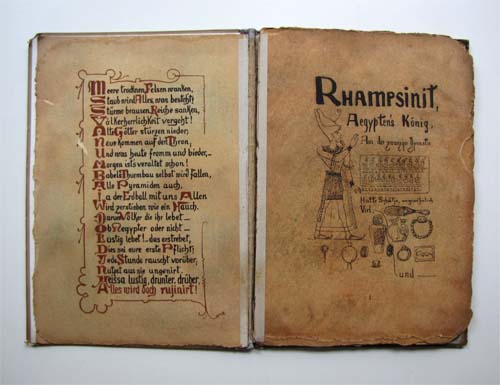 Meere trocknen, Felsen wanken,
Staub wird Alles, was besteht;
Stürme brausen, Reiche sanken,
Völkerherrlichkeit vergeht!
Alte Götter stürzen nieder;
Neue kommen auf den Thron,
Und was heute fromm und bieder,–
Morgen ists veraltet schon!
Babels Thurmbau selbst wird fallen,
Alle Pyramiden auch,
Ja der Erdball mit uns Allen
Wird zerstieben wie ein Hauch.
Darum Völker die ihr lebet–
Ob Aegypter oder nicht–
Lustig lebet!–das erstrebet,
Dies sei eure erste Pflicht!
Jede Stunde rauscht vorüber,
Nutzet aus sie ungenirt.
Heissa lustig, drunter, drüber,
Alles wird doch rujinirt!
Rhampsinit,
Aegyptens König,
Aus der Dynastie
Hatte Schätze,
Viel
und